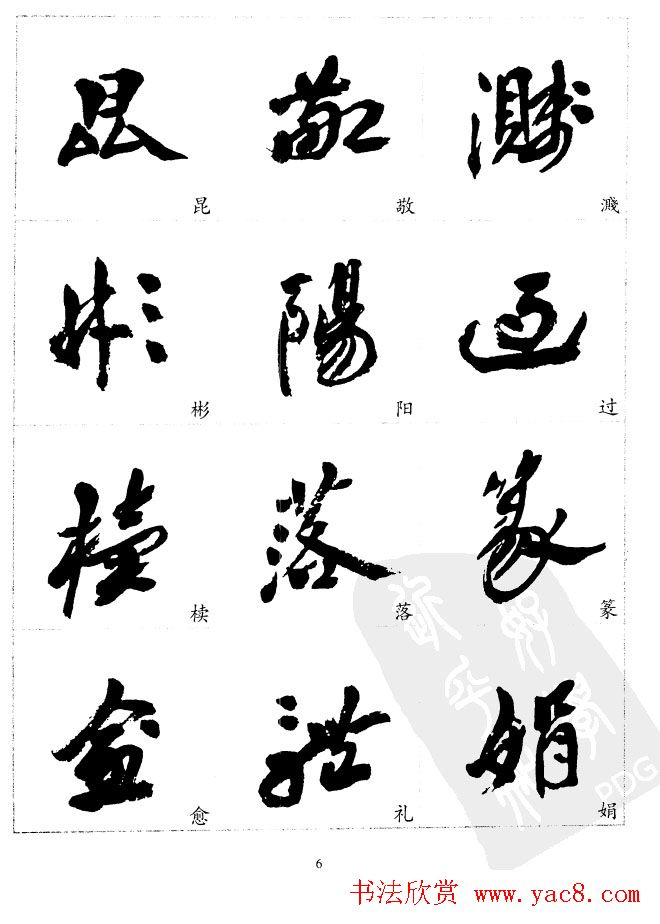 昆 敬 濺
昆 敬 溅
彬 陽 過
彬 阳 过
櫝 落 篆
椟 落 篆
愈 禮 娟
愈 礼 娟
PDG
6
书法欣赏 www.yac8.com